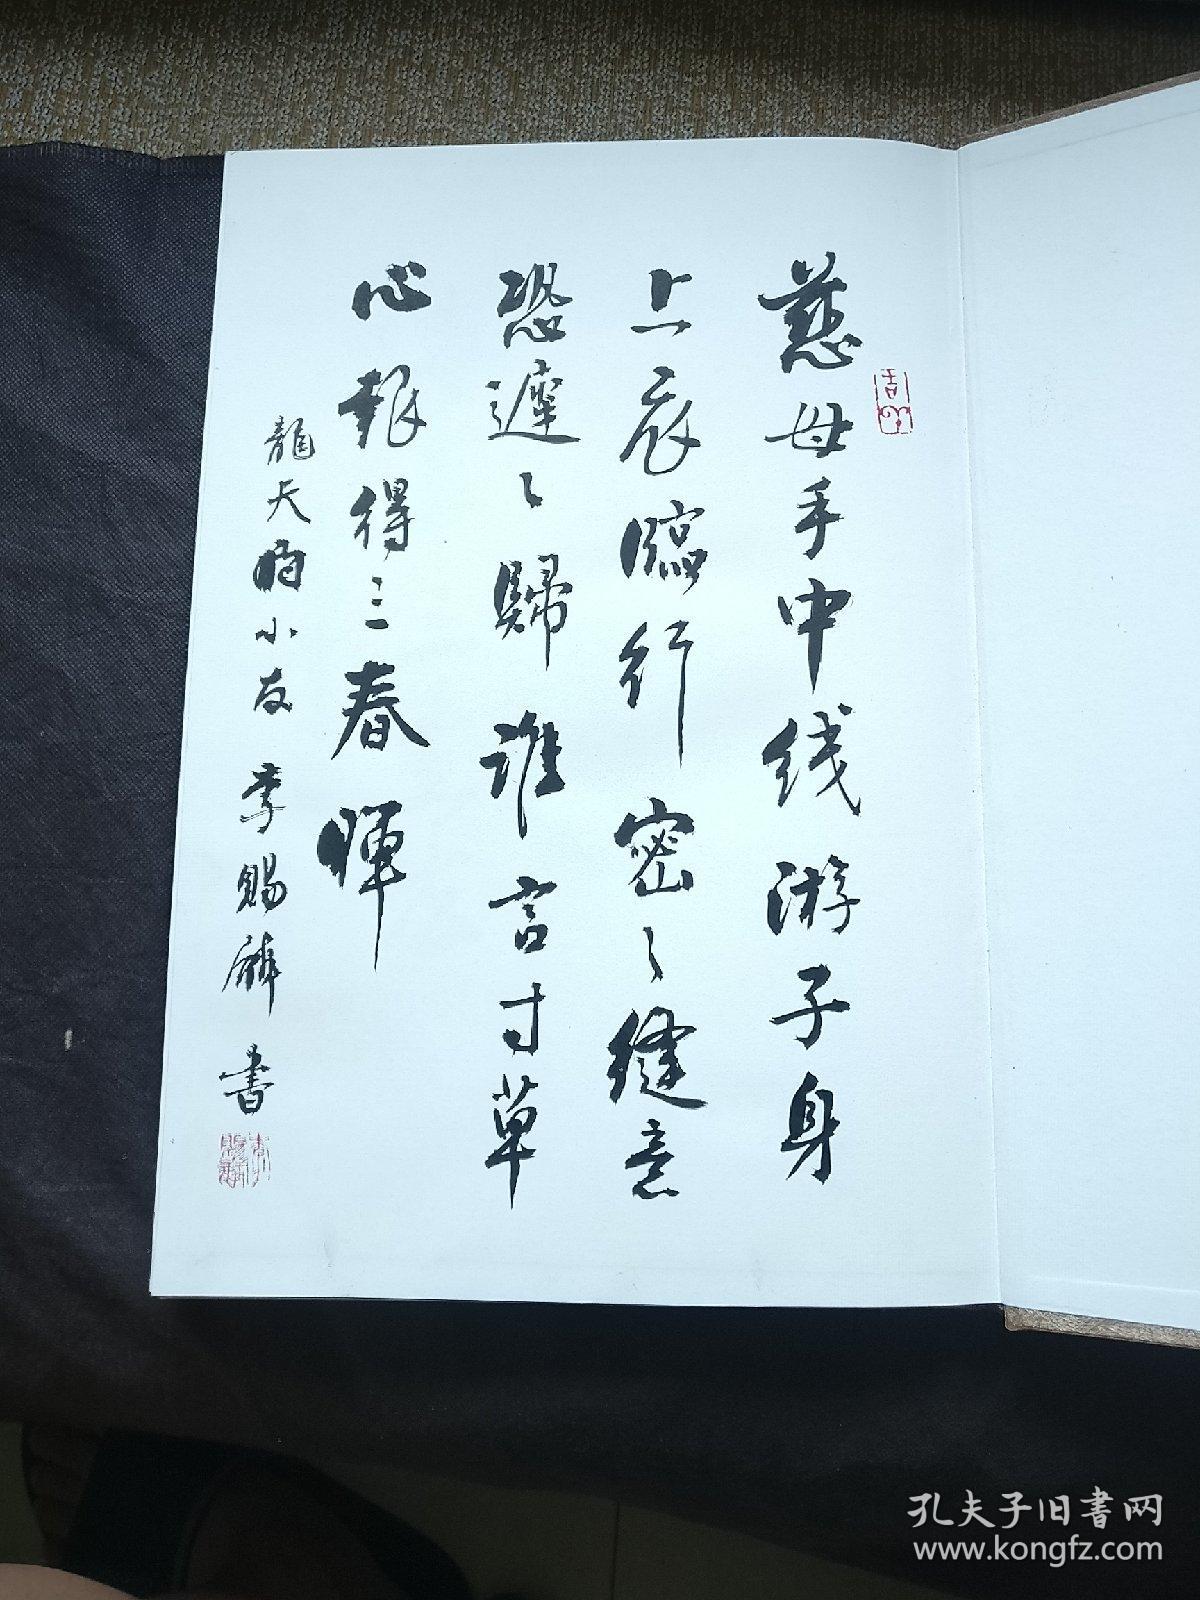 慈母手中线游子身
上衣臨行密々缝意
恐遲々歸谁言寸草
心報得三春暉
龍天小友 李賜 書
孔夫子旧書网
www.kongfz.com